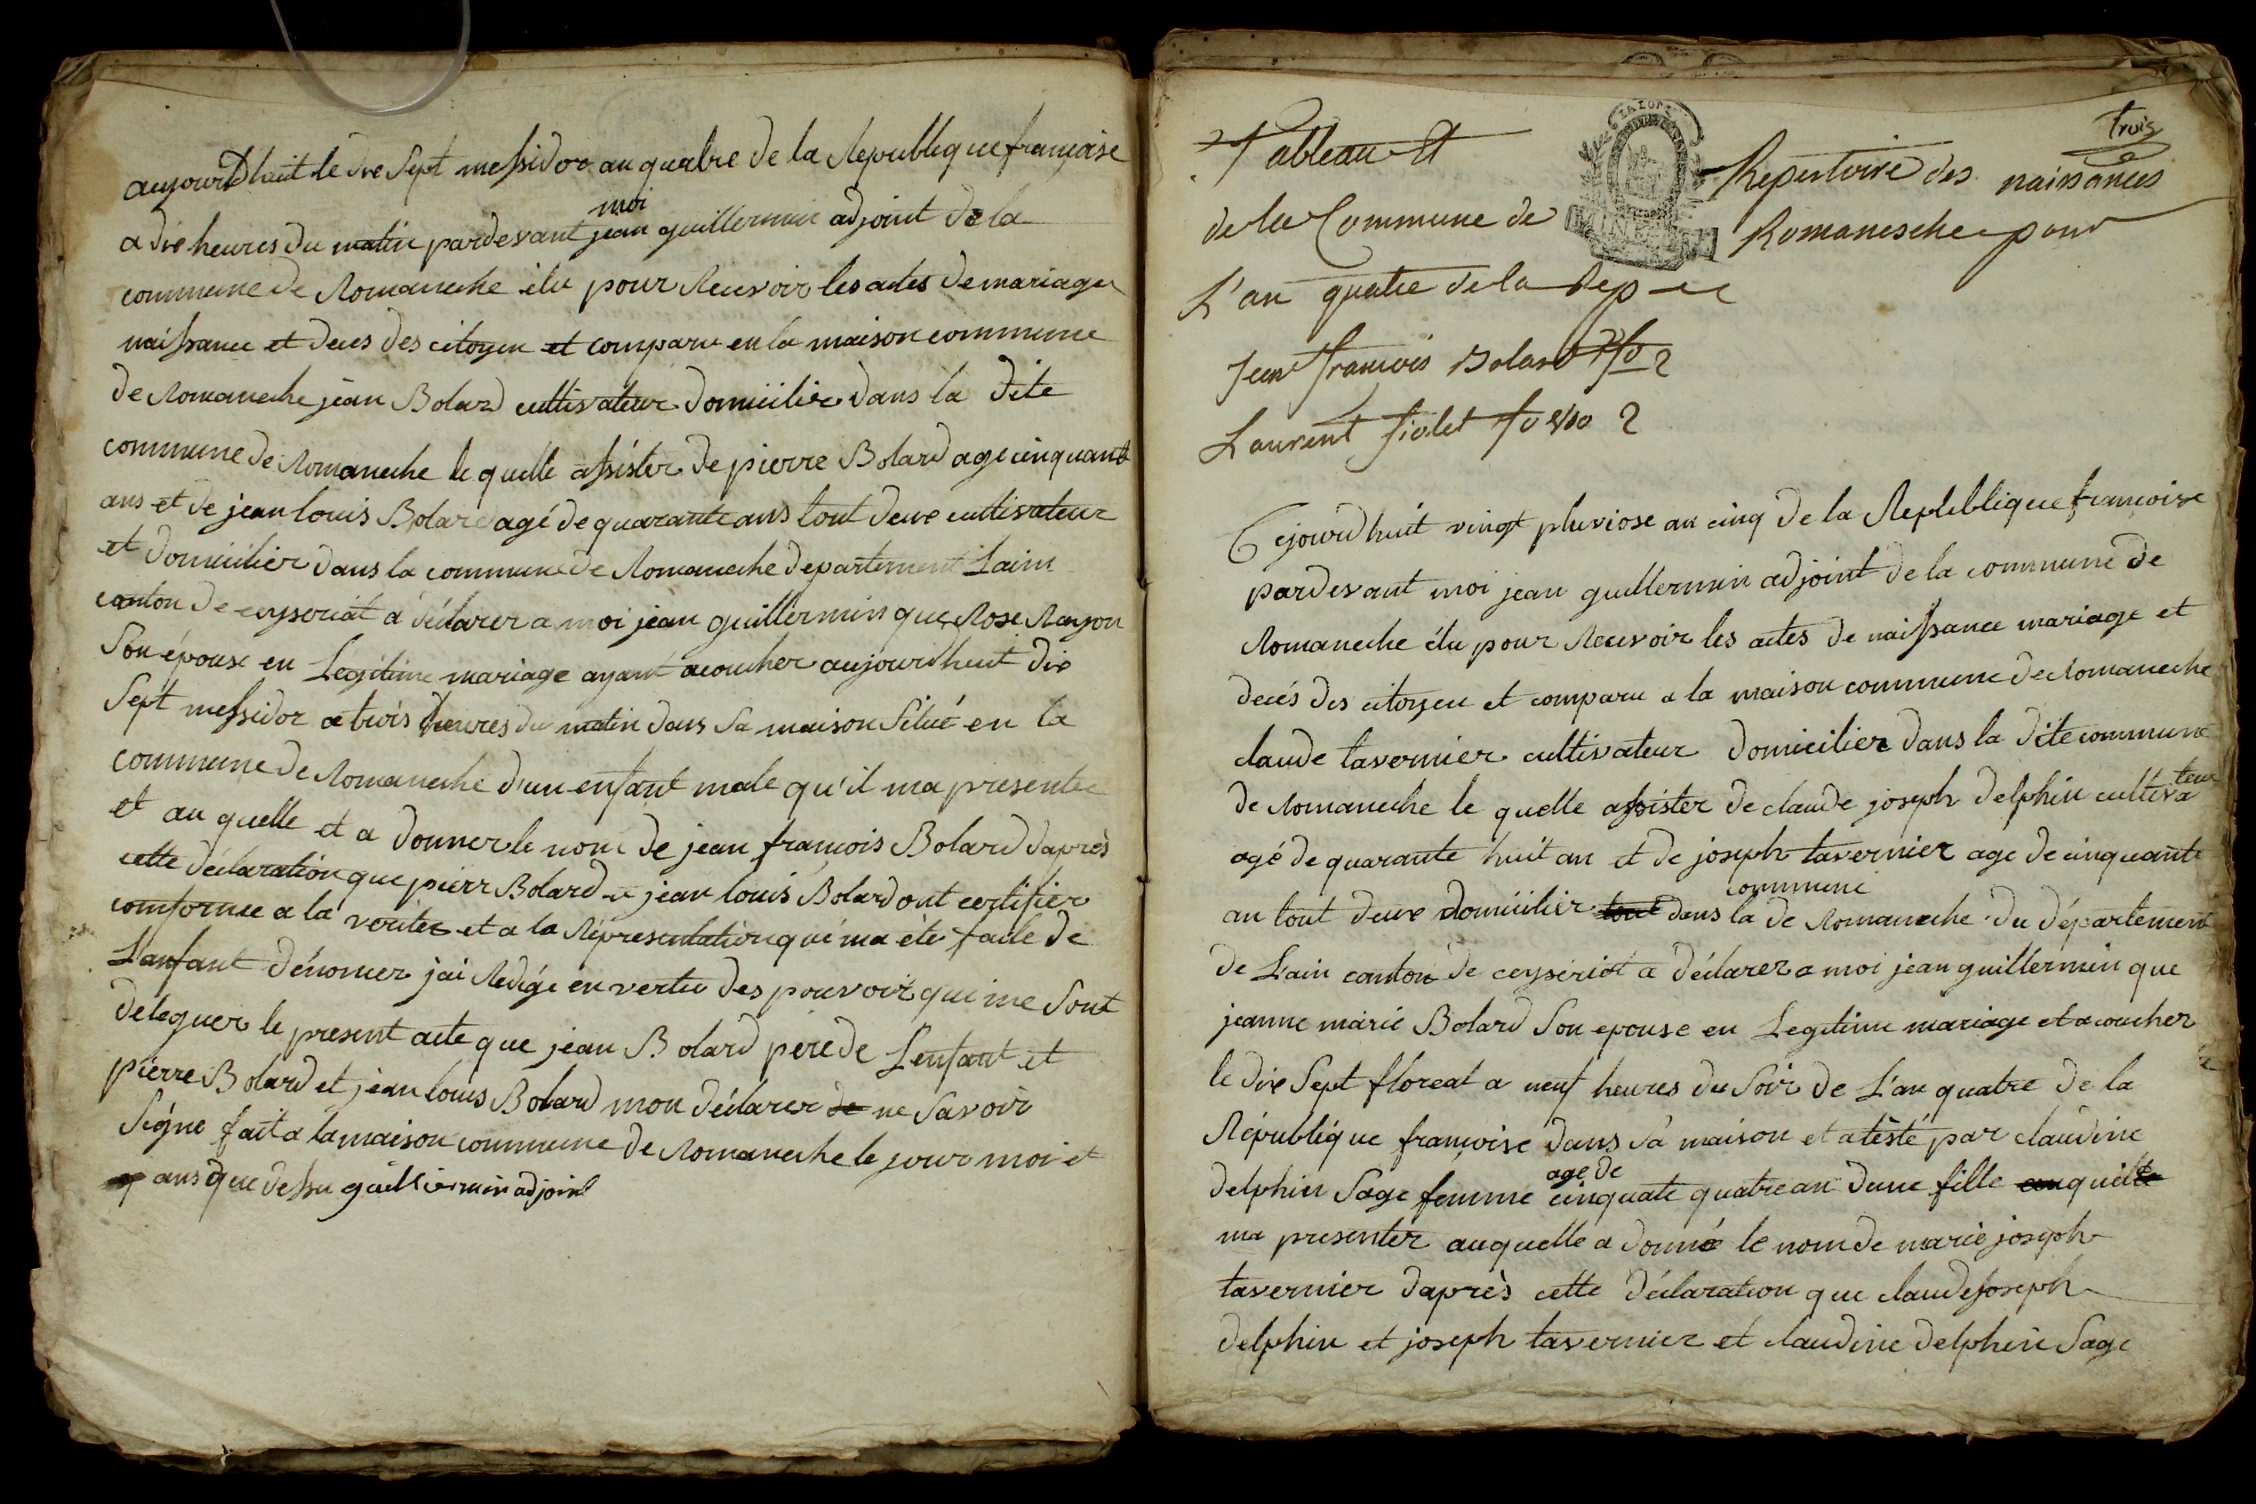 aujourdhuit le dix Sept messidor an quatre de la Republique française
a dix heures du matin pardevant moi jean guillermin adjoint de la
commune de Romaneche élu pour Recevoir les actes de mariage
naissance et deces des citoyen et comparu en la maison commune
de Romaneche jean Bolard cultivateur domicilier dans la dite
commune de Romaneche le quelle assister de pierre Bolard age cinquante
ans et de jean louis Bolard agé de quarante ans tout deux cultivateur
et domicilier dans la commune de Romaneche departement Lain
canton de ceyseriat a déclarer a moi jean guillermin que Rose Rayon
Son épouse en Legitime mariage ayant acoucher aujourdhuit dix
Sept messidor a trois heures du matin dans Sa maison Situé en la
commune de Romaneche d'un enfant male qu'il ma presenter
et au quelle et a donner le nom de jean françois Bolard dapres
cette déclaration que pierr Bolard et jean louis Bolard ont certifier
conforme a la veritee et a la Représentation qui ma été faite de
L'anfant dénomer jai Redigé en vertu des pouvoir qui me Sont
déléguer le present acte que jean Bolard pere de Lenfant et
pierre Bolard et jean louis Bolard mon déclarer de ne Savoir
Signe fait a la maison commune de Romaneche le jour moi et
ans que dessu guilliermin adjoint
trois
Tableau Et Repertoire des naissances
de la Commune de Romanesche pour
L'an quatre de la Rep
Jean françois Bolard fo 2
Laurent fiolet fo 2
Cejourdhuit vingt pluviose an cinq de la Repleblique françoise
pardevant moi jean guillermin adjoint de la commune de
Romaneche élu pour Recevoir les actes de naissance mariage et
decés des citoyen et comparu a la maison commune de Romaneche
claude tavernier cultivateur domicilier dans la dite commune
de Romaneche le quelle assister de claude joseph delphin cultivateur
agé de quarante huit an et de joseph tavernier age de cinquante
an tout deux domicilier tout dans la commune de Romaneche du département
de L'ain canton de ceyseriat a déclarer a moi jean guillermin que
jeanne marie Bolard Son epouse en Legitime mariage et acoucher
le dix Sept floreal a neuf heures du Soir de L'an quatre de la
République françoise dans Sa maison et atesté par claudine
delphin Sage femme age de cinquate quatre an dune fille quil
ma presenter auquelle a donné le nom de marie joseph
tavernier daprès cette déclaration que claude joseph
delphin et joseph tavernier et claudine delphin Sage